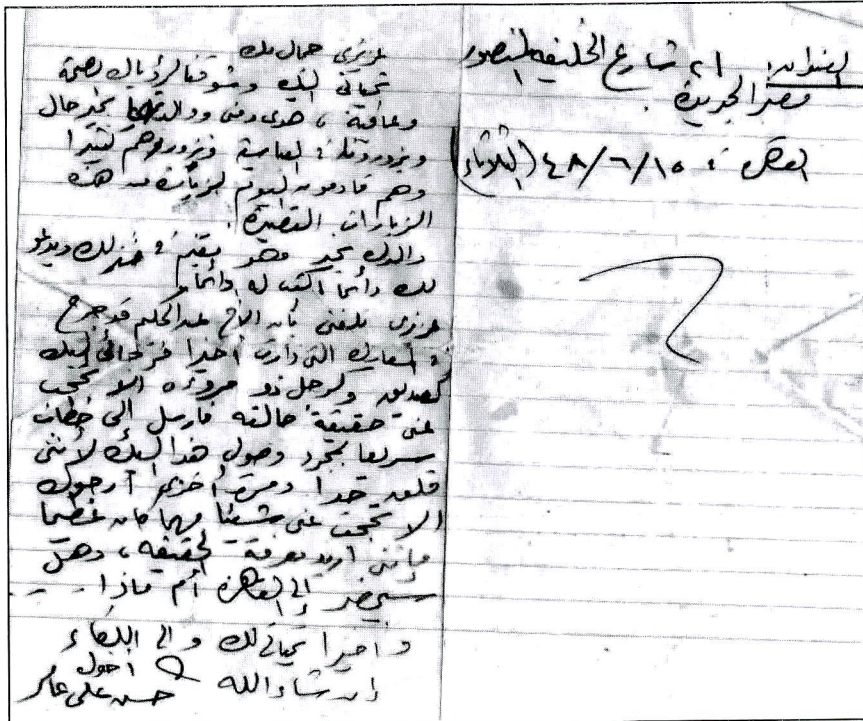 العنوان: ٢١ شارع الخليفه المنصور
مصر الجديدة.
القاهرة ١٥/٦/٤٨ (الثلاثاء)
عزيزى جمال بك
تحياتى إليك وشوقنا لرؤياك بصحة
وعافية، هدى ومنى ووالدتهما بخير حال
العباسية ونزورهم كثيرا
وهم قادمون اليوم لزيارتنا من هذه
الزيارات القصيرة.
والدك بخير وهو يقبلك ويدعو
لك دائما اكتب له دائما
عزيزى بلغنى بأن الأخ عبد الحكيم قد جرح
فى المعارك التى دارت أخيرا فرجائى إليك
كصديق وكرجل ذو مروءة ألا تحجب
عنى حقيقة حالته فارسل إلى خطاب
سريعا بمجرد وصول هذا إليك لأننى
قلق جدا ومرة أخرى أرجوك
ألا تحجب عنى شيئا مهما كان عظيما
فإننى أريد معرفة الحقيقه، وهل
سيحضر إلى القاهرة أم ماذا...
وأخيرا تحياتى لك وإلى اللقاء
إن شاء الله أخوك
حسن على عامر